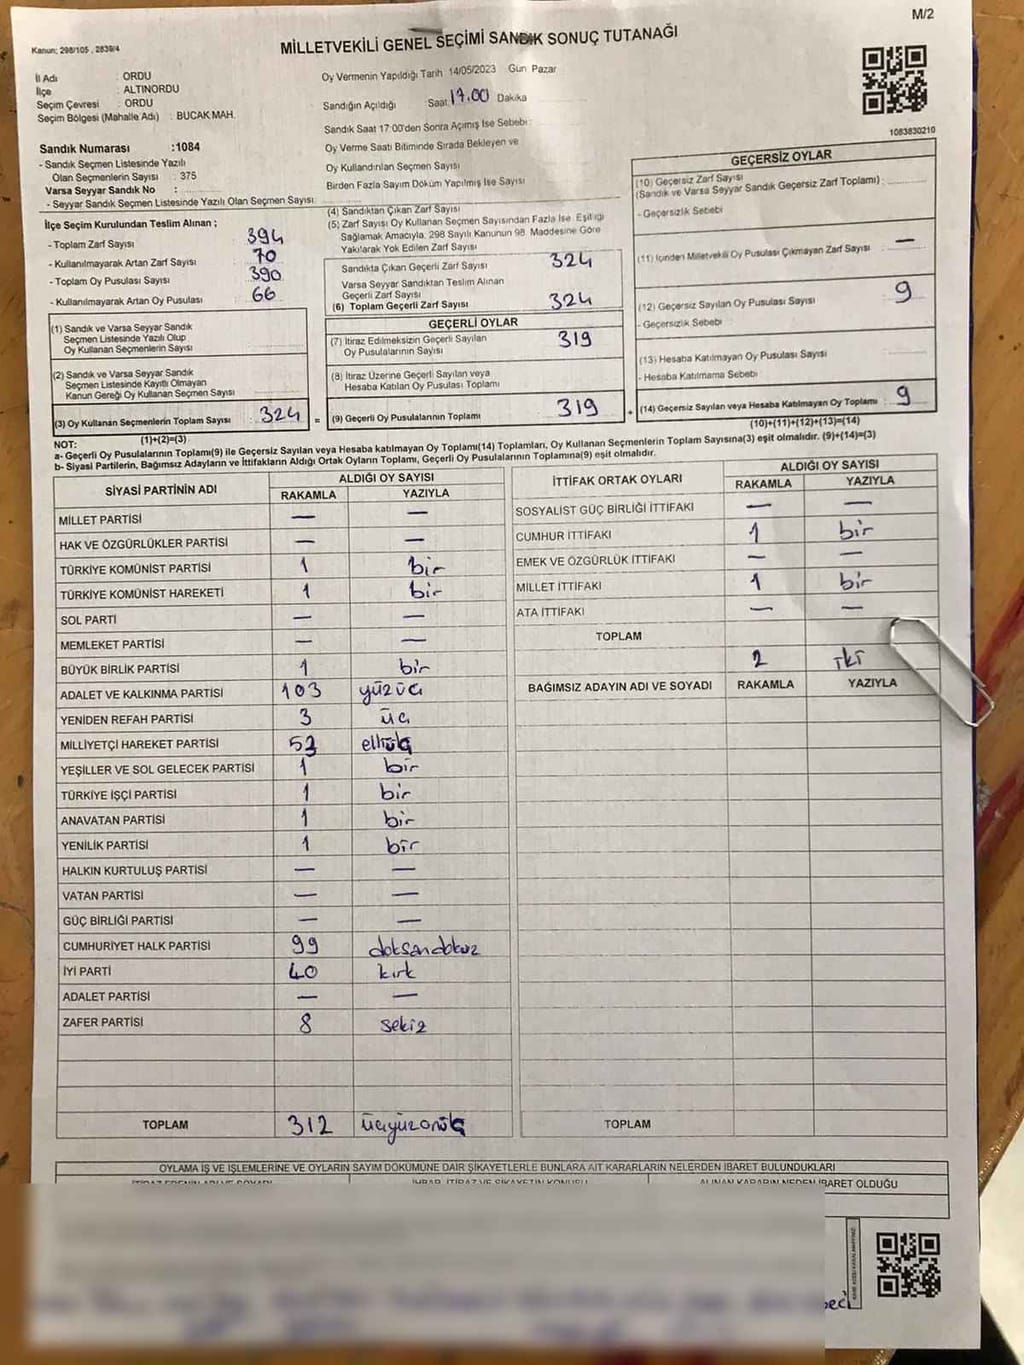 M/2
Kanun; 298/105 , 2839/4
MİLLETVEKİLİ GENEL SEÇİMİ SANDIK SONUÇ TUTANAĞI
İl Adı : ORDU
İlçe : ALTINORDU
Seçim Çevresi : ORDU
Seçim Bölgesi (Mahalle Adı) : BUCAK MAH.
Oy Vermenin Yapıldığı Tarih 14/05/2023 Gün Pazar
Sandığın Açıldığı Saat 17.00 Dakika
Sandık Saat 17:00'den Sonra Açımış İse Sebebi
Oy Verme Saati Bitiminde Sırada Bekleyen ve
Oy Kullandırılan Seçmen Sayısı
Birden Fazla Sayım Döküm Yapılmış İse Sayısı
1083830210
Sandık Numarası :1084
- Sandık Seçmen Listesinde Yazılı
Olan Seçmenlerin Sayısı : 375
Varsa Seyyar Sandık No :
- Seyyar Sandık Seçmen Listesinde Yazılı Olan Seçmen Sayısı
İlçe Seçim Kurulundan Teslim Alınan ;
- Toplam Zarf Sayısı 394
- Kullanılmayarak Artan Zarf Sayısı 70
- Toplam Oy Pusulası Sayısı 390
- Kullanılmayarak Artan Oy Pusulası 66
(1) Sandık ve Varsa Seyyar Sandık
Seçmen Listesinde Yazılı Olup
Oy Kullanan Seçmenlerin Sayısı
(2) Sandık ve Varsa Seyyar Sandık
Seçmen Listesinde Kayıtlı Olmayan
Kanun Gereği Oy Kullanan Seçmen Sayısı
(3) Oy Kullanan Seçmenlerin Toplam Sayısı 324 =
(1)+(2)=(3)
(4) Sandıktan Çıkan Zarf Sayısı
(5) Zarf Sayısı Oy Kullanan Seçmen Sayısından Fazla İse Eşitliği
Sağlamak Amacıyla, 298 Sayılı Kanunun 98. Maddesine Göre
Yakılarak Yok Edilen Zarf Sayısı
Sandıkta Çıkan Geçerli Zarf Sayısı 324
Varsa Seyyar Sandıktan Teslim Alınan
Geçerli Zarf Sayısı
(6) Toplam Geçerli Zarf Sayısı 324
GEÇERLİ OYLAR
(7) İtiraz Edilmeksizin Geçerli Sayılan
Oy Pusulalarının Sayısı 319
(8) İtiraz Üzerine Geçerli Sayılan veya
Hesaba Katılan Oy Pusulası Toplamı
(9) Geçerli Oy Pusulalarının Toplamı 319 +
GEÇERSİZ OYLAR
(10) Geçersiz Zarf Sayısı
(Sandık ve Varsa Seyyar Sandık Geçersiz Zarf Toplamı) :
- Geçersizlik Sebebi
(11) İçinden Milletvekili Oy Pusulası Çıkmayan Zarf Sayısı —
(12) Geçersiz Sayılan Oy Pusulası Sayısı 9
- Geçersizlik Sebebi
(13) Hesaba Katılmayan Oy Pusulası Sayısı
- Hesaba Katılmama Sebebi
(14) Geçersiz Sayılan veya Hesaba Katılmayan Oy Toplamı 9
(10)+(11)+(12)+(13)=(14)
NOT:
a- Geçerli Oy Pusulalarının Toplamı(9) ile Geçersiz Sayılan veya Hesaba katılmayan Oy Toplamı(14) Toplamları, Oy Kullanan Seçmenlerin Toplam Sayısına(3) eşit olmalıdır. (9)+(14)=(3)
b- Siyasi Partilerin, Bağımsız Adayların ve İttifakların Aldığı Ortak Oyların Toplamı, Geçerli Oy Pusulalarının Toplamına(9) eşit olmalıdır.
SİYASİ PARTİNİN ADI ALDIĞI OY SAYISI
RAKAMLA YAZIYLA
MİLLET PARTİSİ — —
HAK VE ÖZGÜRLÜKLER PARTİSİ — —
TÜRKİYE KOMÜNİST PARTİSİ 1 bir
TÜRKİYE KOMÜNİST HAREKETİ 1 bir
SOL PARTİ — —
MEMLEKET PARTİSİ — —
BÜYÜK BİRLİK PARTİSİ 1 bir
ADALET VE KALKINMA PARTİSİ 103 yüzüç
YENİDEN REFAH PARTİSİ 3 üç
MİLLİYETÇİ HAREKET PARTİSİ 53 elliüç
YEŞİLLER VE SOL GELECEK PARTİSİ 1 bir
TÜRKİYE İŞÇİ PARTİSİ 1 bir
ANAVATAN PARTİSİ 1 bir
YENİLİK PARTİSİ 1 bir
HALKIN KURTULUŞ PARTİSİ — —
VATAN PARTİSİ — —
GÜÇ BİRLİĞİ PARTİSİ — —
CUMHURİYET HALK PARTİSİ 99 doksandokuz
İYİ PARTİ 40 kırk
ADALET PARTİSİ — —
ZAFER PARTİSİ 8 sekiz
TOPLAM 312
İTTİFAK ORTAK OYLARI ALDIĞI OY SAYISI
RAKAMLA YAZIYLA
SOSYALİST GÜÇ BİRLİĞİ İTTİFAKI — —
CUMHUR İTTİFAKI 1 bir
EMEK VE ÖZGÜRLÜK İTTİFAKI — —
MİLLET İTTİFAKI 1 bir
ATA İTTİFAKI — —
TOPLAM
2 iki
BAĞIMSIZ ADAYIN ADI VE SOYADI RAKAMLA YAZIYLA
TOPLAM
OYLAMA İŞ VE İŞLEMLERİNE VE OYLARIN SAYIM DÖKÜMÜNE DAİR ŞİKAYETLERLE BUNLARA AİT KARARLARIN NELERDEN İBARET BULUNDUKLARI
İHBAR, İTİRAZ VE ŞİKAYETİN KONUSU ALINAN KARARIN NEDEN İBARET OLDUĞU